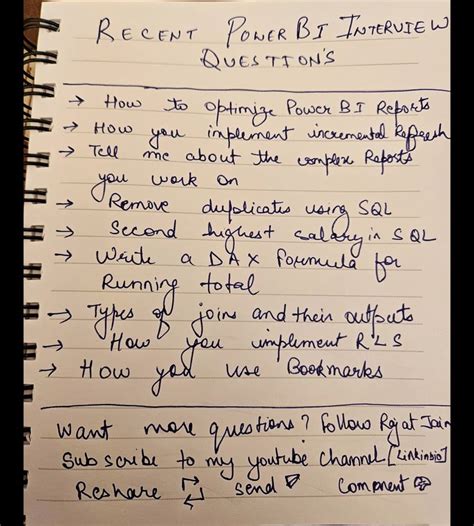 RECENT POWER BI INTERVIEW
QUESTION'S
→ How to optimize Power BI Reports
→ How you implement incremental Refresh
→ Tell me about the complex Reports
you work on
→ Remove duplicates using SQL
→ Second highest salary in SQL
→ Write a DAX formula for
Running total
→ Types of joins and their outputs
→ How you implement RLS
→ How you use Bookmarks
Want more questions? Follow Rajat Jain
Subscribe to my youtube channel [Linkinbio]
Reshare send Comment